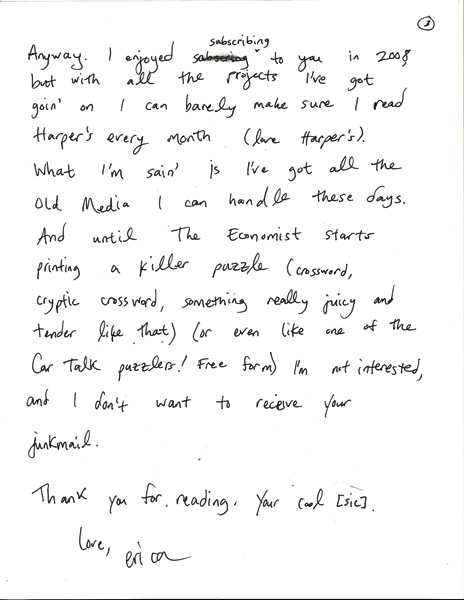 3
Anyway. I enjoyed subscribing to you in 2008
but with all the projects I've got
goin' on I can barely make sure I read
Harper's every month (love Harper's).
What I'm sain' is I've got all the
Old Media I can handle these days.
And until The Economist starts
printing a killer puzzle (crossword,
cryptic crossword, something really juicy and
tender like that) (or even like one of the
Car Talk puzzlers! Free form) I'm not interested,
and I don't want to receive your
junkmail.
Thank you for reading. Your cool [sic].
Love,
erica